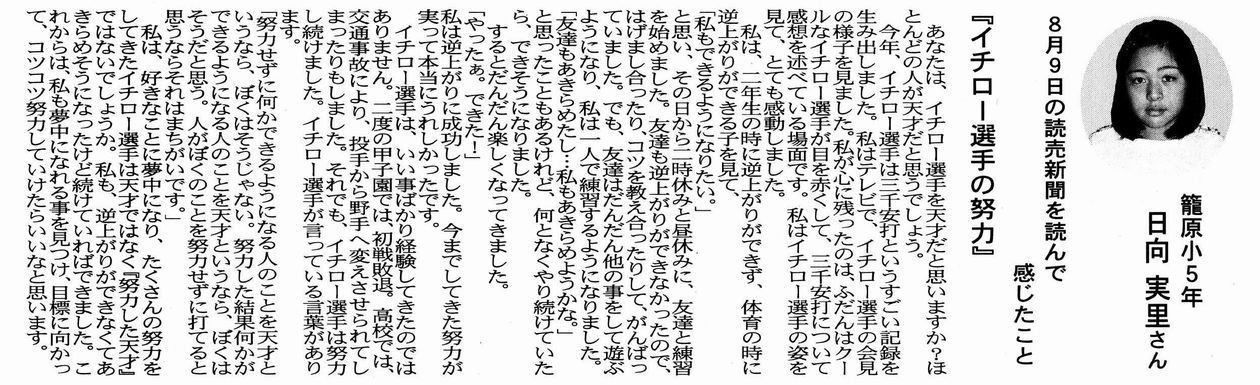 籠原小5年
日向 実里さん
8月9日の読売新聞を読んで
感じたこと
『イチロー選手の努力』
あなたは、イチロー選手を天才だと思いますか？ほ
とんどの人が天才だと思うでしょう。
今年、イチロー選手は三千安打というすごい記録を
生み出しました。私はテレビで、イチロー選手の会見
の様子を見ました。私が心に残ったのは、ふだんはクー
ルなイチロー選手が目を赤くして、三千安打について
感想を述べている場面です。私はイチロー選手の姿を
見て、とても感動しました。
私は、二年生の時に逆上がりができず、体育の時に
逆上がりができる子を見て、
「私もできるようになりたい。」
と思い、その日から二時休みと昼休みに、友達と練習
を始めました。友達も逆上がりができなかったので、
はげまし合ったり、コツを教え合ったりして、がんばっ
ていました。でも、友達はだんだん他の事をして遊ぶ
ようになり、私は一人で練習するようになりました。
「友達もあきらめたし…私もあきらめようかな。」
と思ったこともあるけれど、何となくやり続けていた
ら、できそうになりました。
するとだんだん楽しくなってきました。
「やったぁ。できた！」
私は逆上がりに成功しました。今までしてきた努力が
実って本当にうれしかったです。
イチロー選手は、いい事ばかり経験してきたのでは
ありません。二度の甲子園では、初戦敗退。高校では、
交通事故により、投手から野手へ変えさせられてし
まったりもしました。それでも、イチロー選手は努力
し続けました。イチロー選手が言っている言葉があり
ます。
「努力せずに何かできるようになる人のことを天才と
いうなら、ぼくはそうじゃない。努力した結果何かが
できるようになる人のことを天才というなら、ぼくは
そうだと思う。人がぼくのことを努力せずに打てると
思うならそれはまちがいです。」
私は、好きなことに夢中になり、たくさんの努力を
してきたイチロー選手は天才ではなく『努力した天才』
ではないでしょうか。私も、逆上がりができなくてあ
きらめそうになったけど続けていればできました。こ
れからは、私も夢中になれる事を見つけ、目標に向かっ
て、コツコツ努力していけたらいいなと思います。